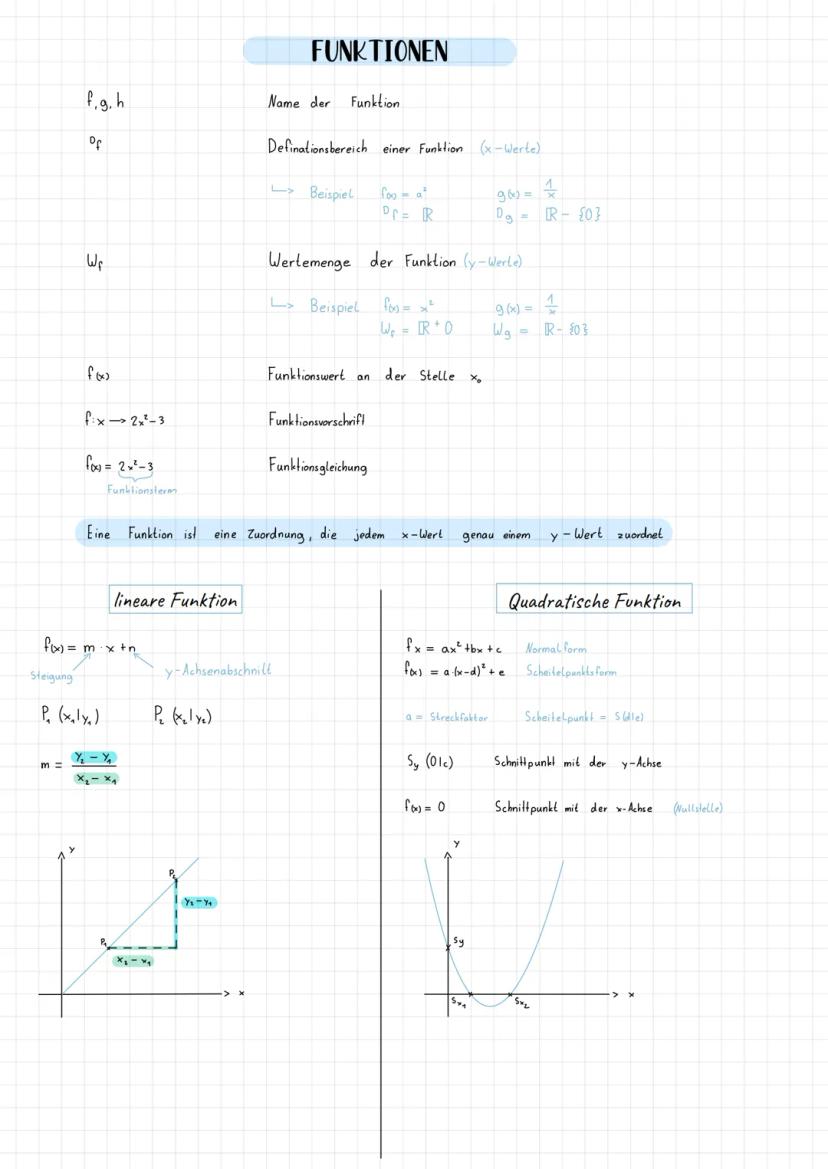 FUNKTIONEN
f, g, h Name der Funktion
Df Definationsbereich einer Funktion (x-Werte)
↳ Beispiel f(x) = a² g(x) = 1/x
Df = ℝ Dg = ℝ - {0}
Wf Wertemenge der Funktion (y-Werte)
↳ Beispiel f(x) = x² g(x) = 1/x
Wf = ℝ⁺0 Wg = ℝ - {0}
f(x) Funktionswert an der Stelle x₀
f: x → 2x² - 3 Funktionsvorschrift
f(x) = 2x² - 3 Funktionsgleichung
Funktionsterm
Eine Funktion ist eine Zuordnung, die jedem x-Wert genau einem y-Wert zuordnet
lineare Funktion
f(x) = m · x + n
Steigung y-Achsenabschnitt
P₁ (x₁|y₁) P₂ (x₂|y₂)
m = y₂ - y₁ / x₂ - x₁
y
P₂
y₂ - y₁
P₁
x₂ - x₁
x
Quadratische Funktion
fx = ax² + bx + c Normalform
f(x) = a·(x-d)² + e Scheitelpunktsform
a = Streckfaktor Scheitelpunkt = S(d|e)
Sy (0|c) Schnittpunkt mit der y-Achse
f(x) = 0 Schnittpunkt mit der x-Achse (Nullstelle)
y
Sy
Sx₁ Sx₂
x